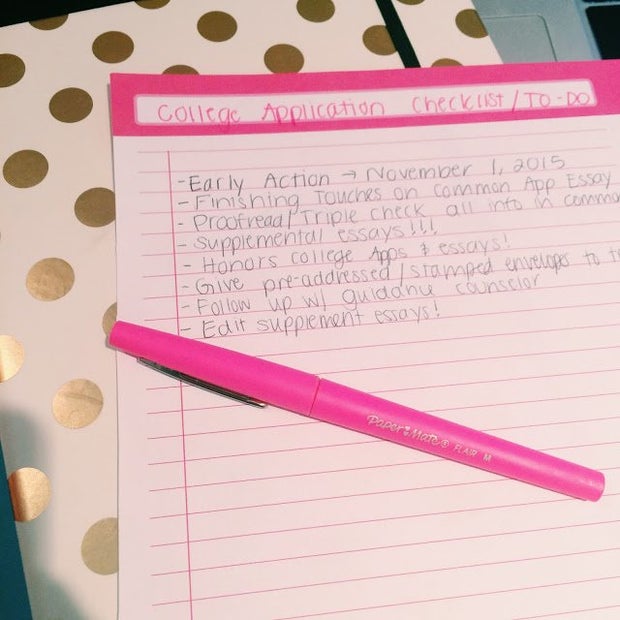 College Application Checklist/TO-DO
- Early Action → November 1, 2015
- Finishing Touches on Common App Essay
- Proofread/Triple check all info in common
- Supplemental essays!!!!
- Honors college Apps & essays!
- Give pre-addressed/stamped envelopes to
- Follow up w/ guidance counselor
- Edit supplement essays!
Paper Mate® FLAIR M